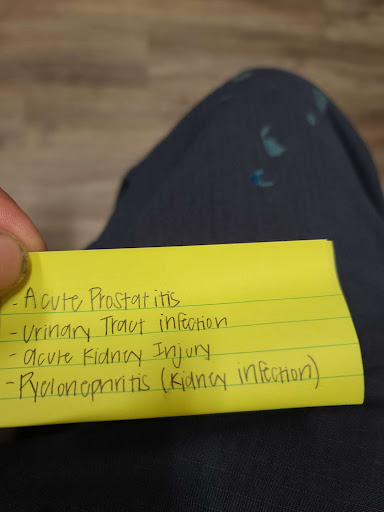 - Acute Prostatitis
- Urinary Tract infection
- acute Kidney Injury
- Pyelonephritis (Kidney infection)